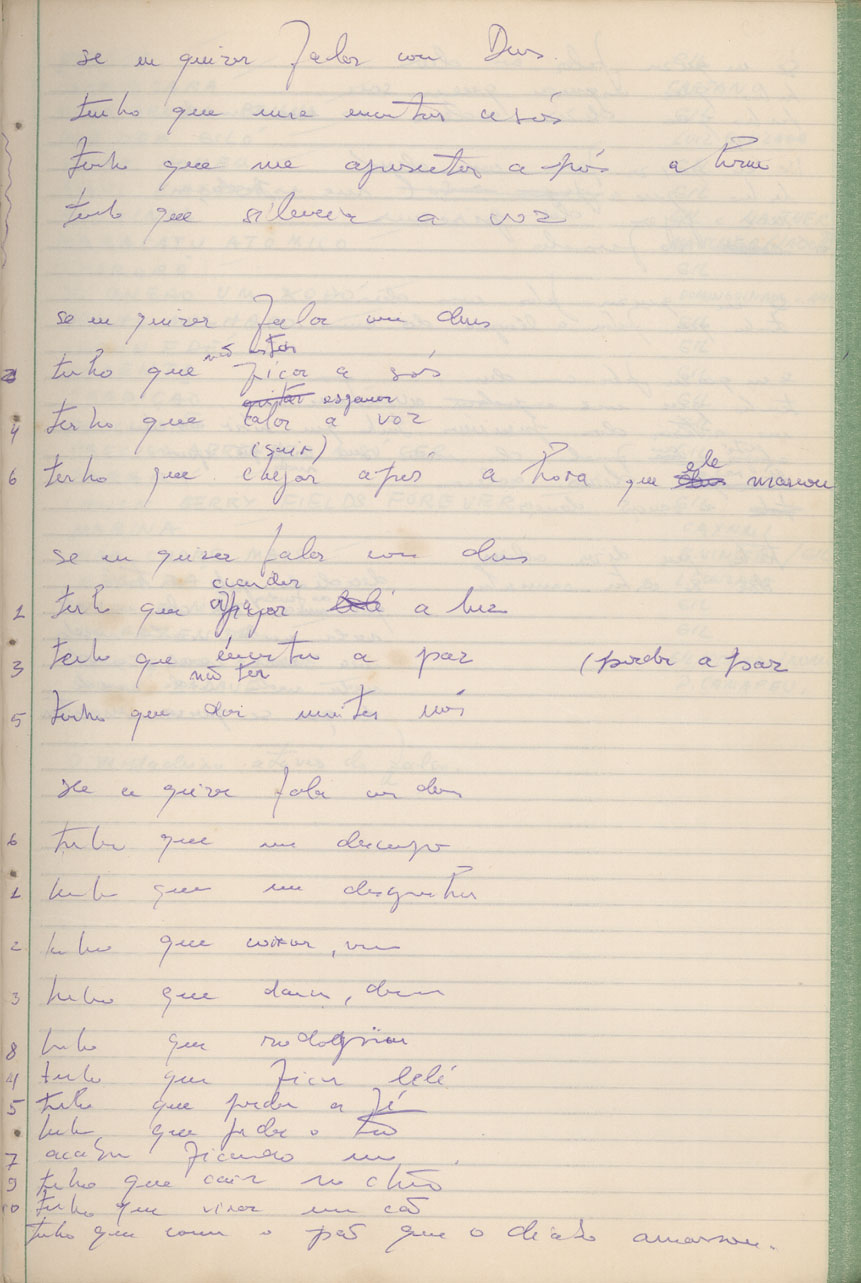 se eu quiser falar com Deus
tenho que me encontrar a sós
tenho que me apresentar a pós a hora
tenho que silenciar a voz
se eu quiser falar com deus
não estar
2 tenho que ficar a sós
gritar esganar
4 tenho que calar a voz
(sair)
6 tenho que chegar após a hora que deus ele marcou
se eu quiser falar com deus
acender
1 tenho que apagar lelé a luz
3 tenho que encontrar a paz (perder a paz
não ter
5 tenho que dar muitos nós
se eu quiser falar com deus
6 tenho que me
1 tenho que me
2 tenho que
3 tenho que
8 tenho que rodopiar
4 tenho que ficar lelé
5 tenho que perder a fé
tenho que perder o
7 acabar ficando
9 tenho que cair no chão
10 tenho que virar um cão
tenho que comer o pão que o diabo amassou.